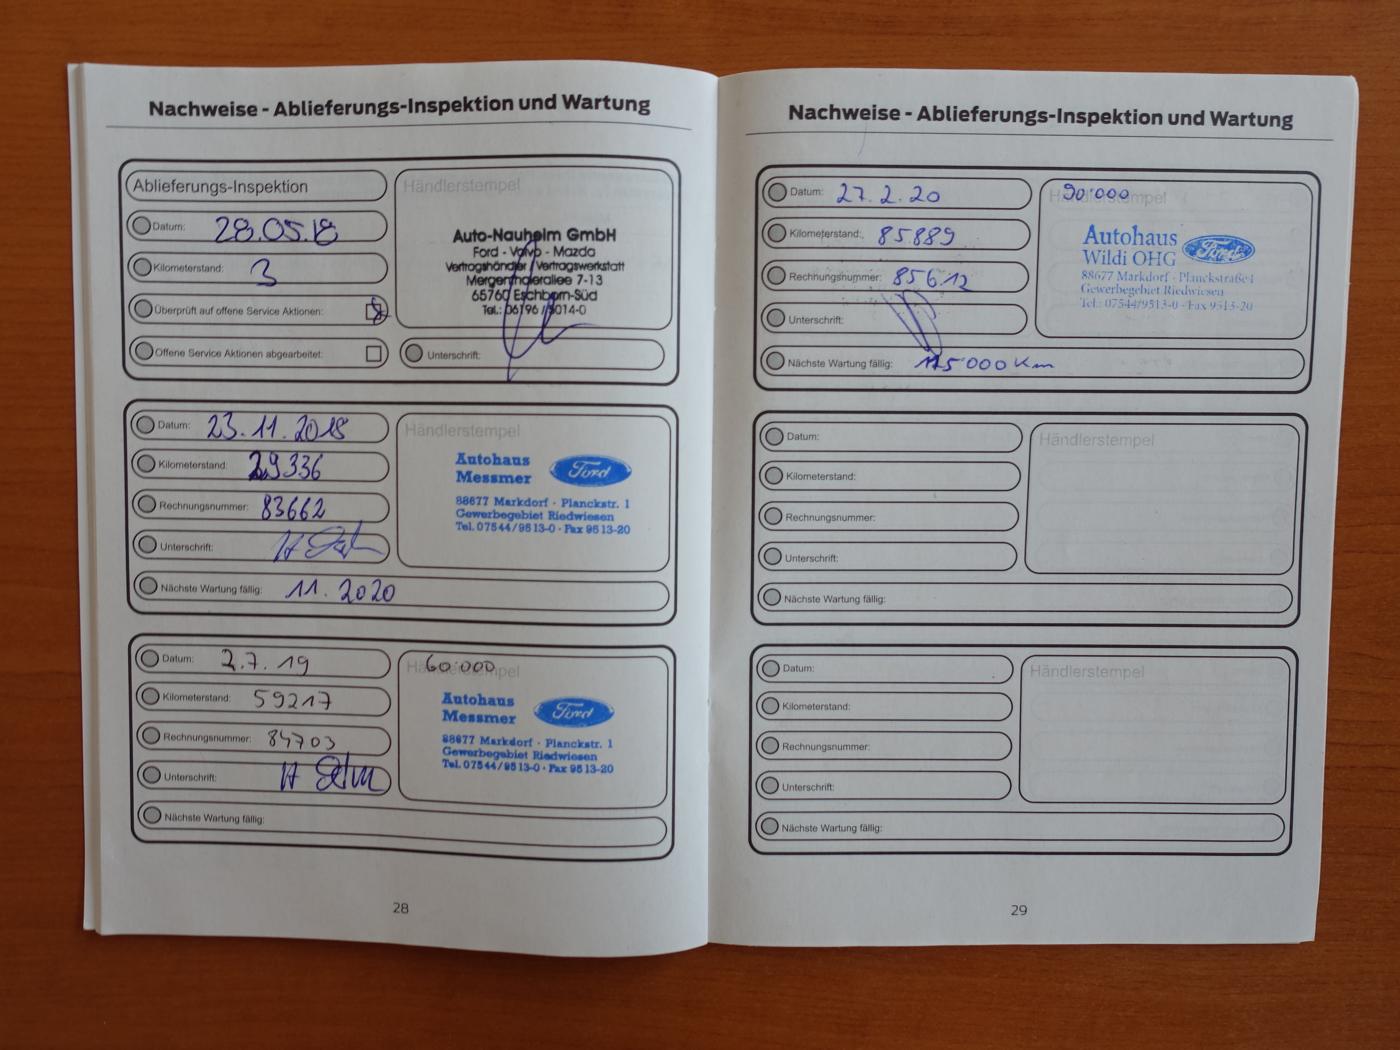 Nachweise - Ablieferungs-Inspektion und Wartung
Ablieferungs-Inspektion
Datum: 28.05.18
Kilometerstand: 3
Überprüft auf offene Service Aktionen:
Offene Service Aktionen abgearbeitet:
Händlerstempel
Auto-Nauheim GmbH
Ford - Volvo - Mazda
Vertragshändler / Vertragswerkstatt
Mergenthalerallee 7-13
65760 Eschborn-Süd
Tel.: 06196 / 5014-0
Unterschrift:
Datum: 23.11.2018
Kilometerstand: 29336
Rechnungsnummer: 83662
Unterschrift:
Nächste Wartung fällig: 11.2020
Händlerstempel
Autohaus
Messmer
Ford
88677 Markdorf · Planckstr. 1
Gewerbegebiet Riedwiesen
Tel. 07544/9513-0 · Fax 9513-20
Datum: 2.7.19
Kilometerstand: 59217
Rechnungsnummer: 84703
Unterschrift:
Nächste Wartung fällig:
Händlerstempel
60'000
Autohaus
Messmer
Ford
88677 Markdorf · Planckstr. 1
Gewerbegebiet Riedwiesen
Tel. 07544/9513-0 · Fax 9513-20
28
Nachweise - Ablieferungs-Inspektion und Wartung
Datum: 27.2.20
Kilometerstand: 85889
Rechnungsnummer: 85612
Unterschrift:
Nächste Wartung fällig: 115'000 Km
Händlerstempel
90'000
Autohaus
Wildi OHG
Ford
88677 Markdorf · Planckstraße 1
Gewerbegebiet Riedwiesen
Tel.: 07544/9513-0 · Fax 9513-20
Datum:
Kilometerstand:
Rechnungsnummer:
Unterschrift:
Nächste Wartung fällig:
Händlerstempel
Datum:
Kilometerstand:
Rechnungsnummer:
Unterschrift:
Nächste Wartung fällig:
Händlerstempel
29